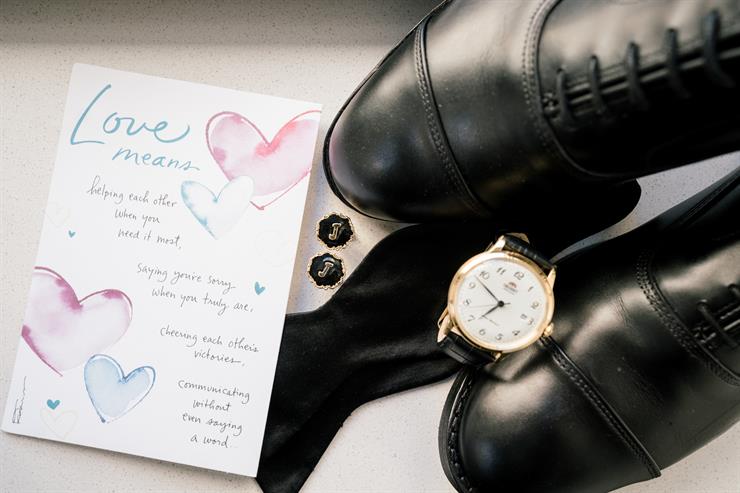 Love
means
helping each other
when you
need it most,
saying you're sorry
when you truly are,
cheering each other's
victories,
communicating
without
even saying
a word...
J
J
ORIENT